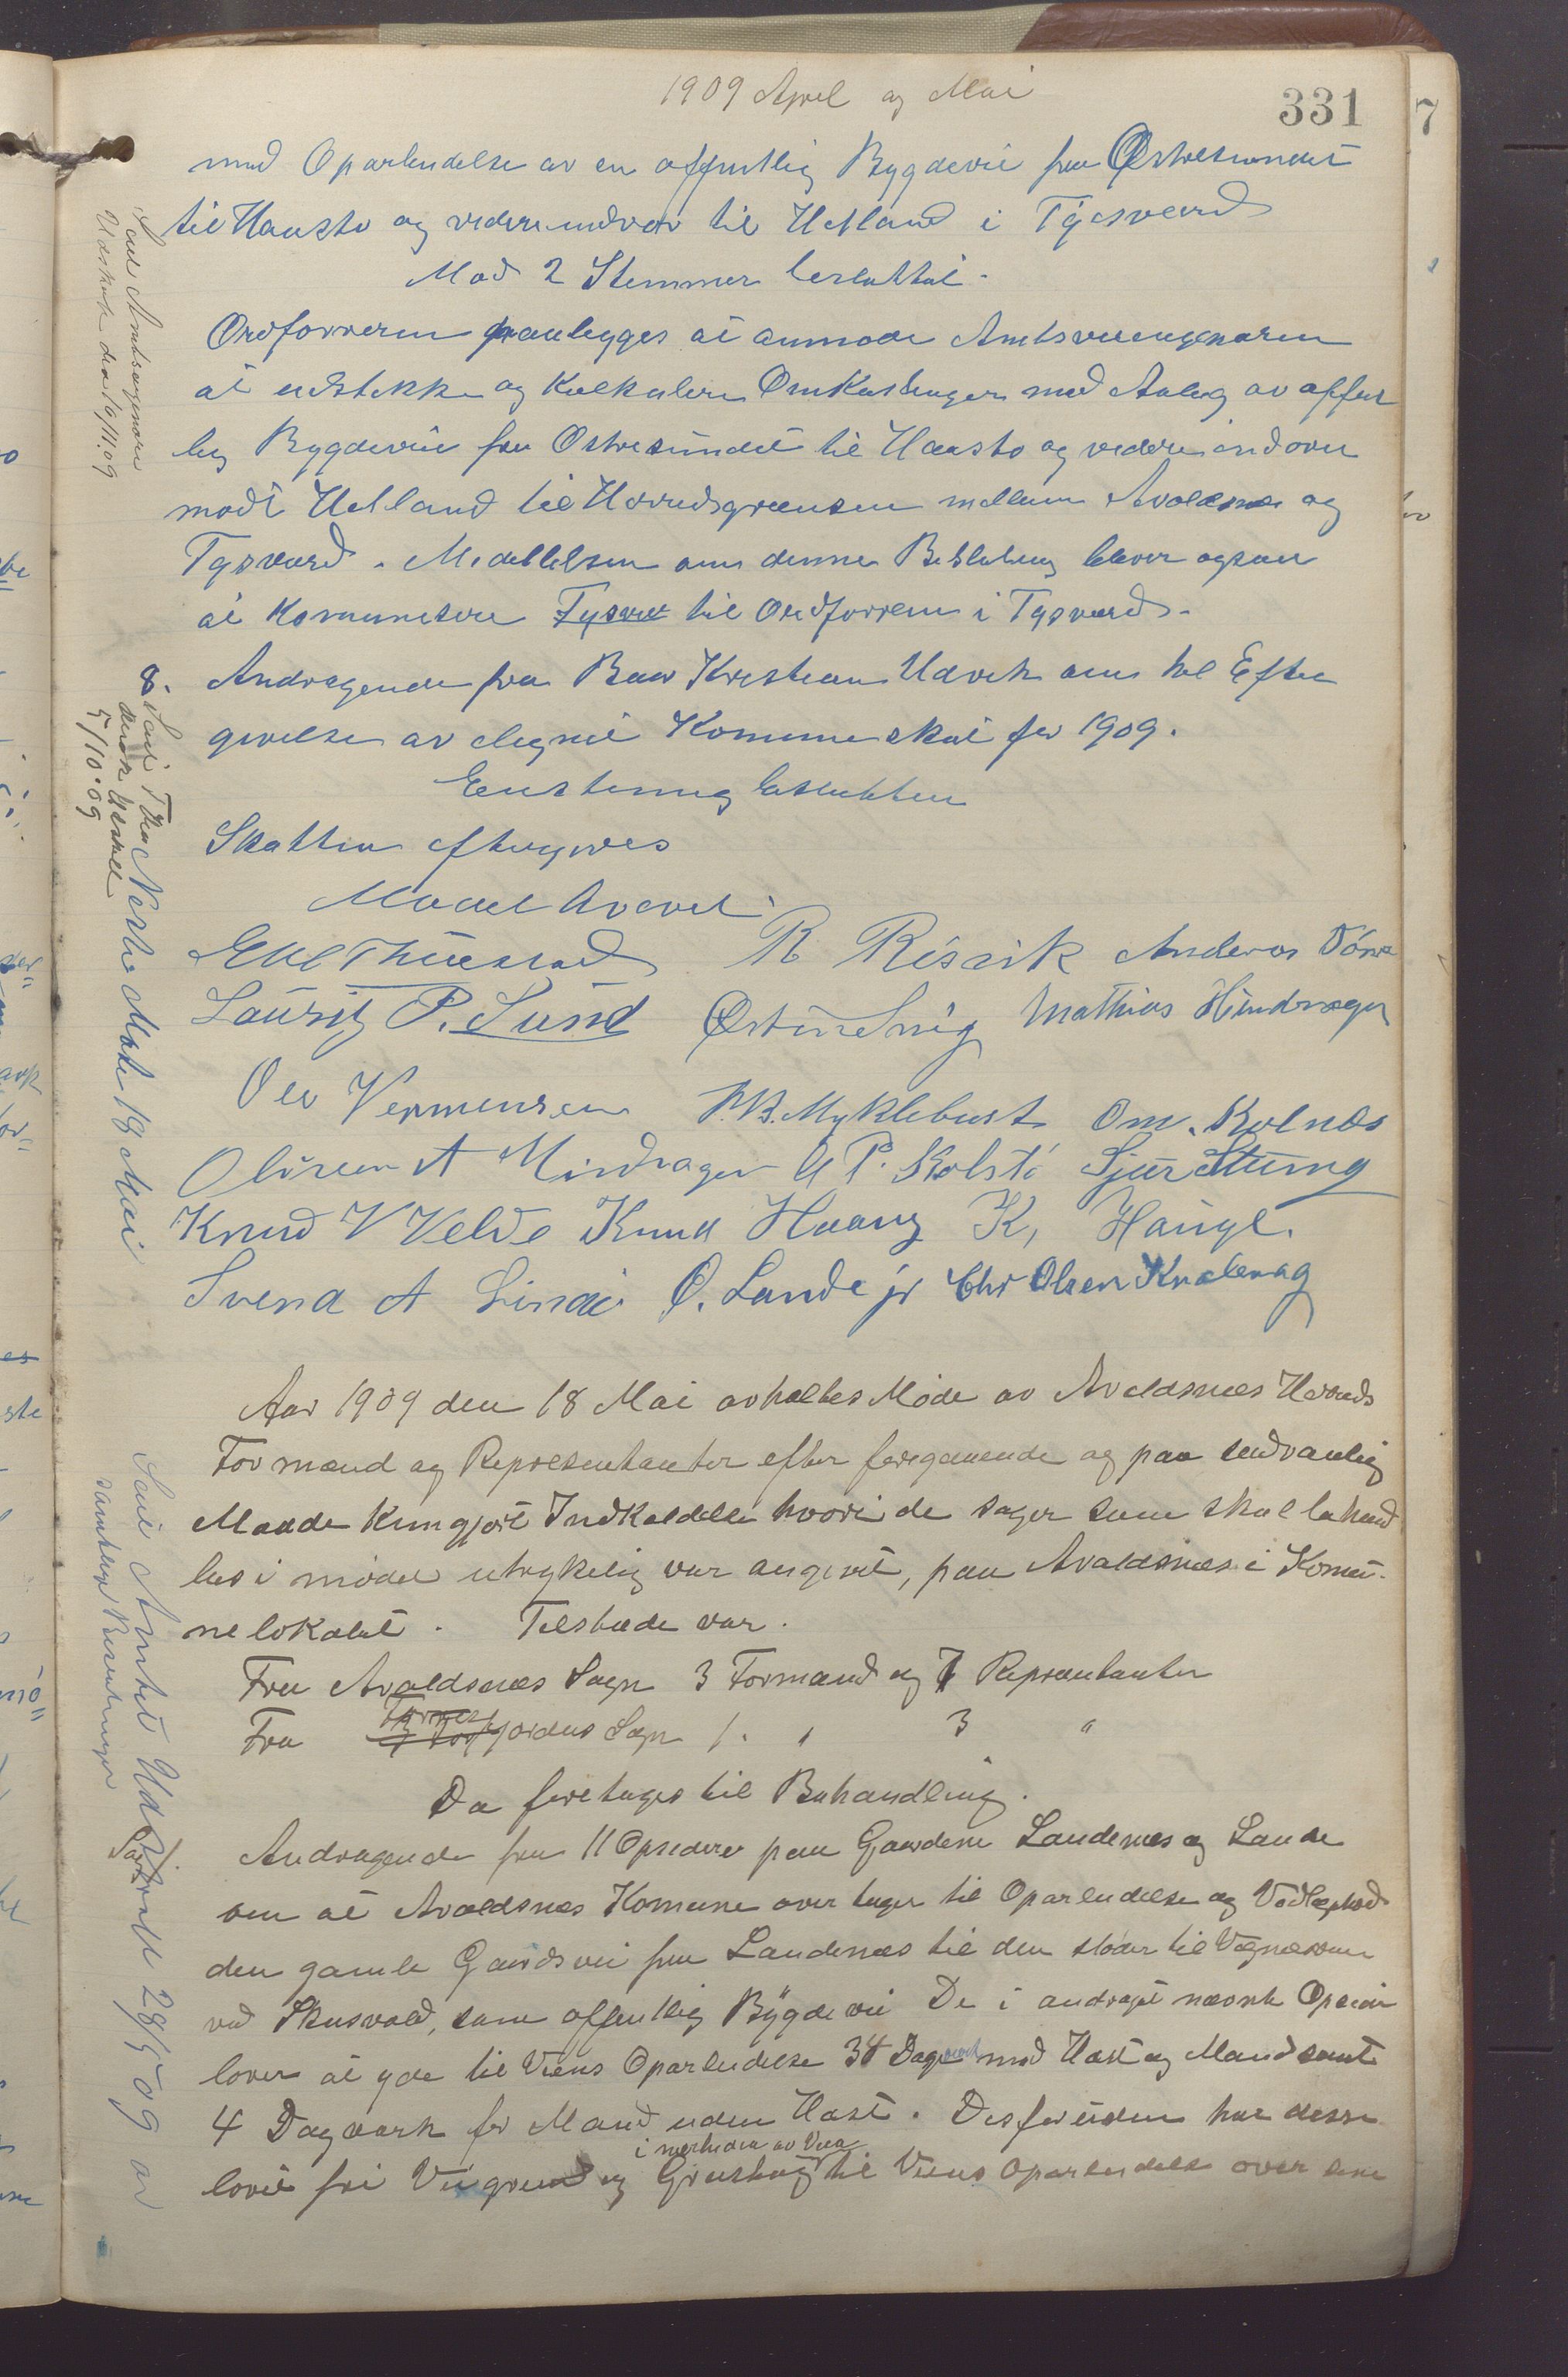 1909 April og Mai
331
med Oparbeidelse av en offentlig Bygdevei fra Østresundet
til Haasto og videre indover til Hetland i Tysværd
Mod 2 Stemmer besluttet.
Ordføreren paalegges at anmode Amtsveiengeniøren
at udstikke og Kalkulere Omkostningen med Anlæg av offent
lig Bygdevei fra Østresundet til Haasto og videre indover
modt Hetland til Herredsgrænsen mellem Avaldsnes og
Tysværd. Meddellelsen om denne Beslutning bliver ogsaa
at Komunisere Tysver til Ordføreren i Tysværd.
8. Andragende fra Baar Kristian Udvik om hel Efter
givelse av elignet Komuneskat for 1909.
Enstemig besluttet
Skatten eftergives
Mødet hævet.
R Risvik Anderas
Lauritz P. Lund Mathias Hindrager
Ole Vermunsen P.B. Myklebust Om. Kolnæs
Olivur A Mindrager P. Kolstø Sjur Stumg
Knud V Velde Knud Haang K, Hauge.
Svend A Linde O. Lande jr Chr Olsen Knalevag
Aar 1909 den 18 Mai avholtes Møde av Avaldsnes Herreds
Formænd og Representanter efter foregaaende og paa sedvanlig
Maade Kungjort Indkaldelse hvori de sager som skal behand
les i mødet utrykelig var angivet, paa Avaldsnes i Komu-
nelokalet. Tilstæde var.
Fra Avaldsnes Sogn 3 Formænd og 7 Repræsentanter
Fra Førresfjordens Sogn 1. " 3 "
Da foretages til Behandling.
Andragende fra 11 Opsidere paa Gaardene Landenes og Lande
om at Avaldsnes Komune over tager til Oparbeidelse og Vedligehold
den gamle Gaardsvei fra Landenæs til den støder til
ved Skusvold, som offentlig Bygdevei De i andraget nævnte Opsidere
lover at yde til Veiens Oparbeidelse 34 Dagverk med Hæst og Mand samt
4 Dagværk for Mand uden Hæst. Desforuden har desse
i nærheden av Veia
lovet fri Veigrund og Grustag til Veiens Oparbeidelse over sine
Send Amtsingeniøren
Udskrift den 19/11.09
Send Tho
5/10.09
Neste Møde 18 Mai
Send Amtet Udskrift 28/5 09 av
samtlige Beslutninger